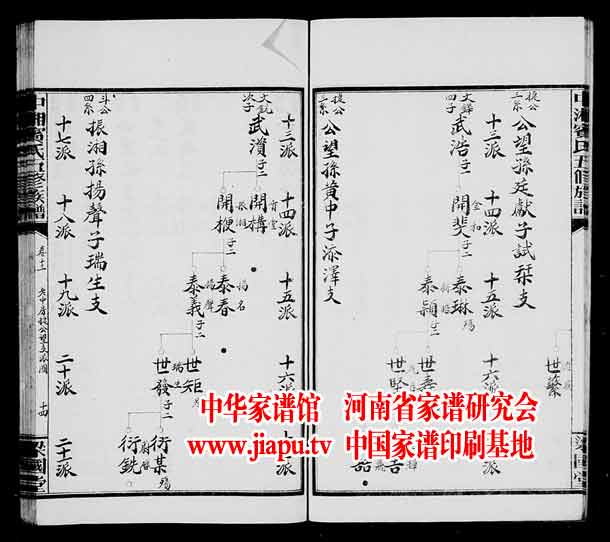 提公
三系
公望孫廷獻子試琹支
十三派
十四派
十五派
十六派
文鐸
四子
武浩
子二
開斐
子二
泰琳
殤
泰顯
子二
世蘩
世
世堅
提公
三系
公望孫黃中子添澤支
十三派
十四派
十五派
十六派
文
次子
武濆
子二
開構
開楩
子二
泰春
泰義
子二
世矩
世發
瑞生
子二
衍某
殤
衍銑
斗公
四系
振湘孫揚聲子瑞生支
十七派
十八派
十九派
二十派
二十派
中湘賓氏五修族譜
卷十二
十四
梁國堂
中华家谱馆 河南省家谱研究会
www.jiapu.tv 中国家谱印刷基地